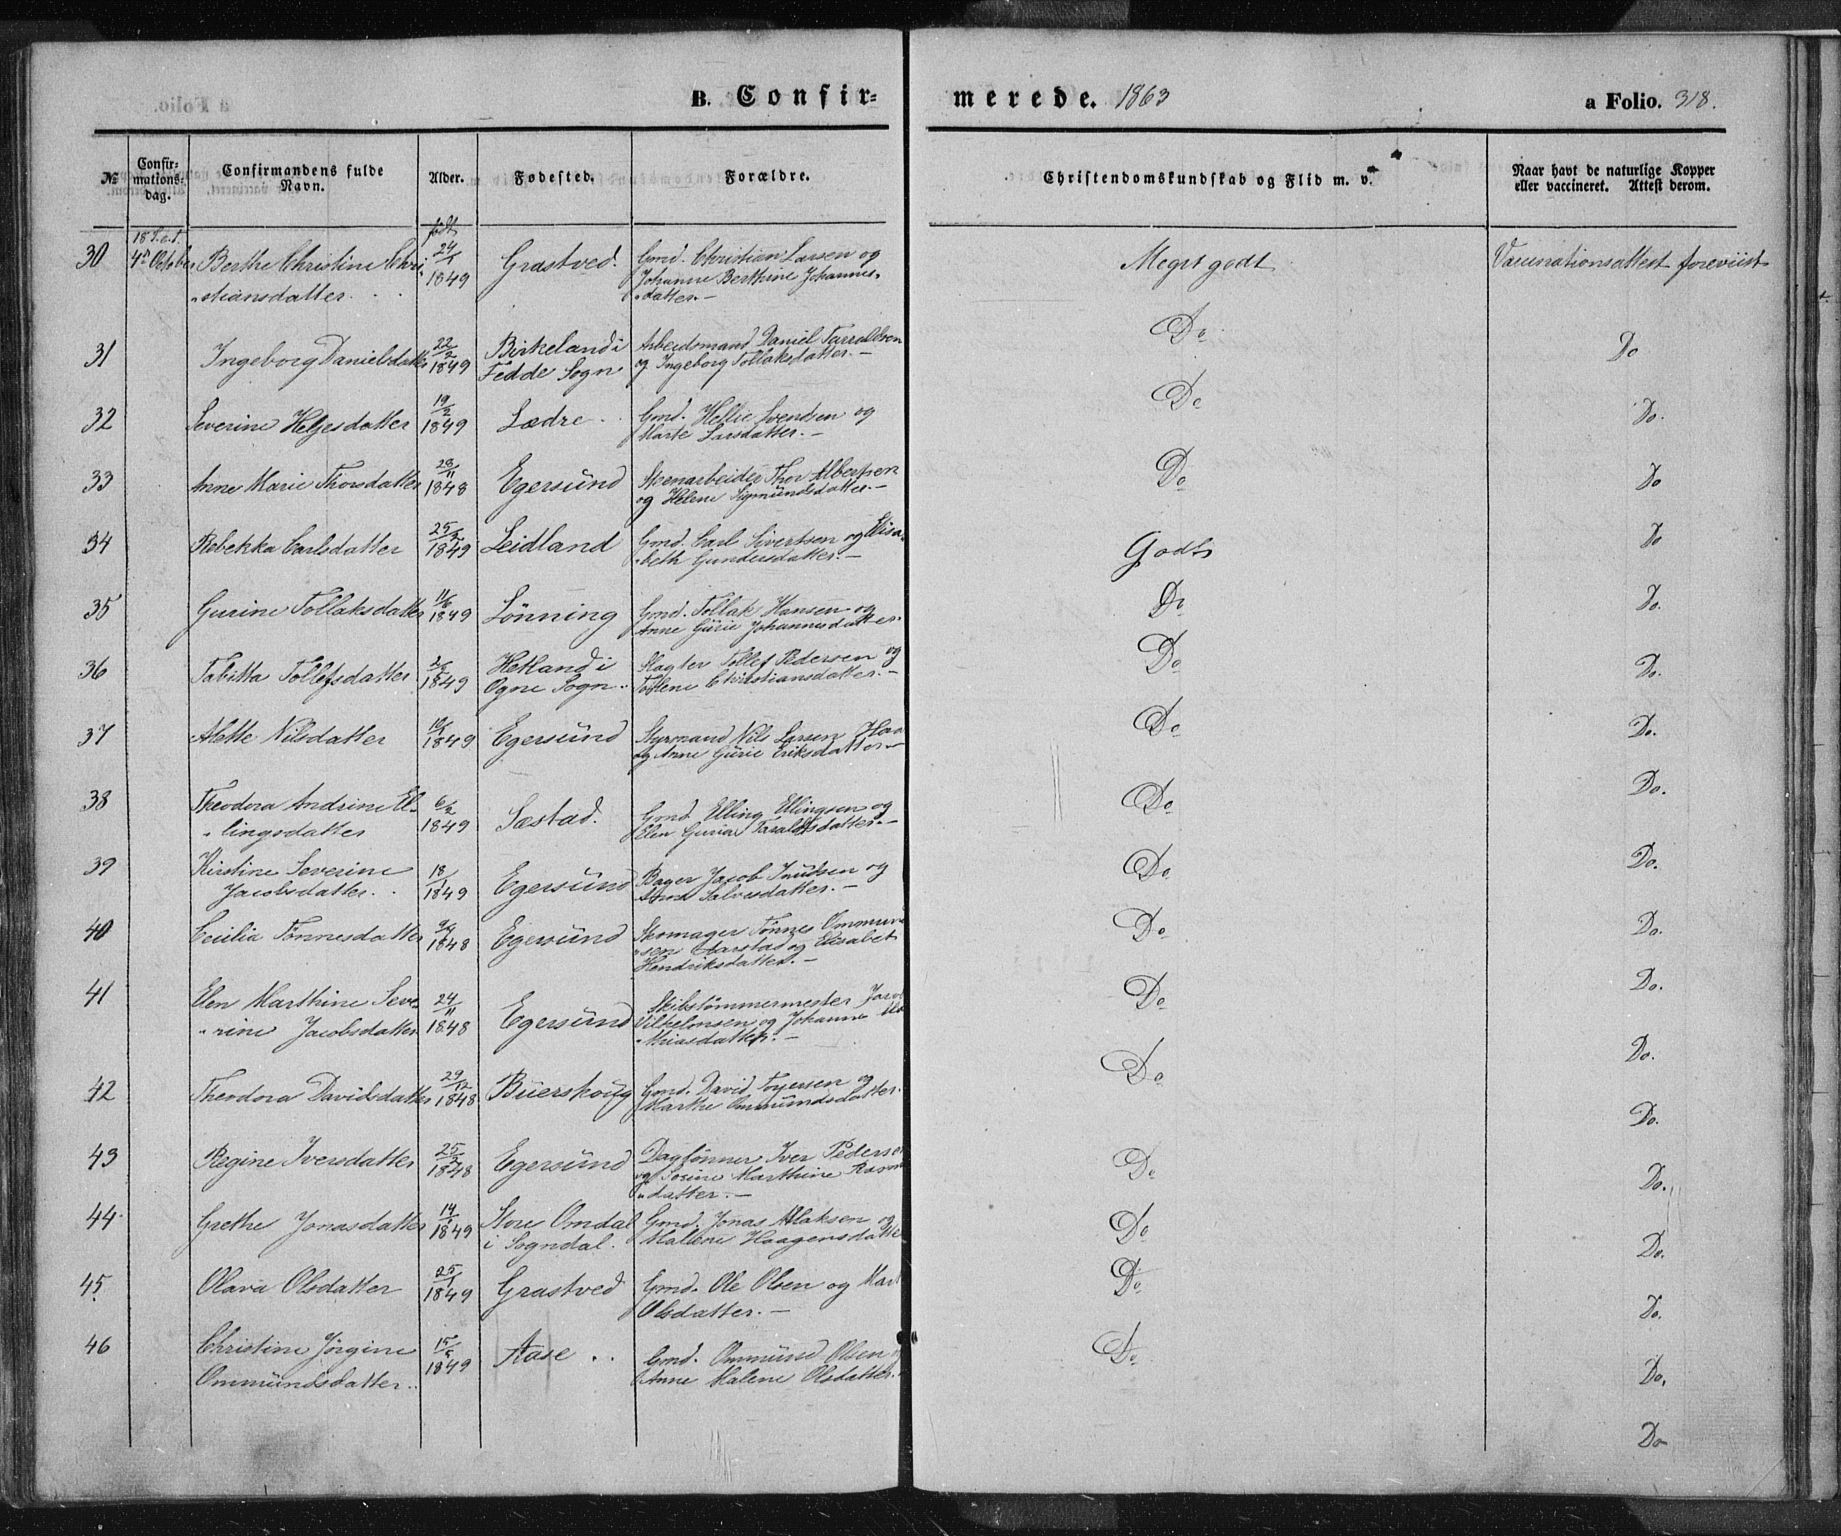 B. Confir-
merede. 1863
a Folio. 318.
№
Confir-
mations-
dag.
Confirmandens fulde
Navn.
Alder.
Fødested.
Forældre.
Christendomskundskab og Flid m. v.
Naar havt de naturlige Kopper
eller vaccineret. Attest derom.
født
30 4de October Berthe Christine Chri- 24/1 Grastved. Gmd. Christian Larsen og Meget godt Vaccinationsattest foreviist
stiansdatter. 1849 Johanne Berthine Johannes-
datter.-
31 Ingeborg Danielsdatter 22/2 1849 Birkeland i Arbeidsmand Daniel Tarraldsen Do Do
Fedde Sogn og Ingeborg Tollaksdatter.-
32 Severine Helgesdatter 19/2 1849 Lædre. Gmd. Hellie Svendsen og Do Do.
Marte Larsdatter.-
33 Anne Marie Thorsdatter 28/11 1848 Egersund Steenarbeider Thor Albertsen Do Do
og Helene Sigmundsdatter.-
34 Rebekka Carlsdatter 25/2 1849 Leidland Gmd. Carl Sivertsen og Elisa- Godt Do
beth Gundersdatter.-
35 Gurine Tollaksdatter 1849 Lønning Gmd. Tollak Hansen og Do Do.
Anne Gurie Johannesdatter.
36 Tabitta Tollefsdatter 1849 Hetland i Slagter Tollef Pedersen og Do Do.
Ogne Sogn. Christiansdatter.-
37 Alette Nilsdatter 1849 Egersund Styrmand Nils Larsen Do Do.
og Anne Gurie Eriksdatter.-
38 Theodora Andrine El- 6/2 Sæstad. Gmd Elling Ellingsen og Do Do.
lingsdatter 1849 Elen Guria Taraldsdatter.-
39 Kirstine Severine 18/1 Egersund Bager Jacob Knutsen og Do Do.
Jacobsdatter. 1849 Anne Salvesdatter.-
40 Cecilia Tønnesdatter 1848 Egersund Skomager Tønnes Ommun- Do Do.
sen Aarstad og Elisabet
Hendriksdatter.-
41 Elen Marthine Seve- 24/11 Egersund Skibstømmermester Do Do.
rine Jacobsdatter 1848 Vilhelmsen og Johanne
thiasdatter.-
Do.
42 Theodora Davidsdatter 29/12 1848 Buerskoug Gmd. David Tøgersen og Do
Marthe Ommundsdatter. Do.
43 Regine Iversdatter 1848 Egersund Dagløнner Iver Pedersen Do Do.
og Marthine
datter.-
44 Grethe Jonasdatter 1849 Store Omdal Gmd. Jonas Aslaksen og Do Do.
i Sogndal. Mallene Haagensdatter
45. Olava Olsdatter 25/1 1849 Grastved Gmd. Ole Olsen og Do Do.
Olsdatter.-
46 Christine Jørgine 1849 Aase Gmd. Ommund Olsen Do Do.
Ommundsdatter. Anne Malene Olsdatter.
Do